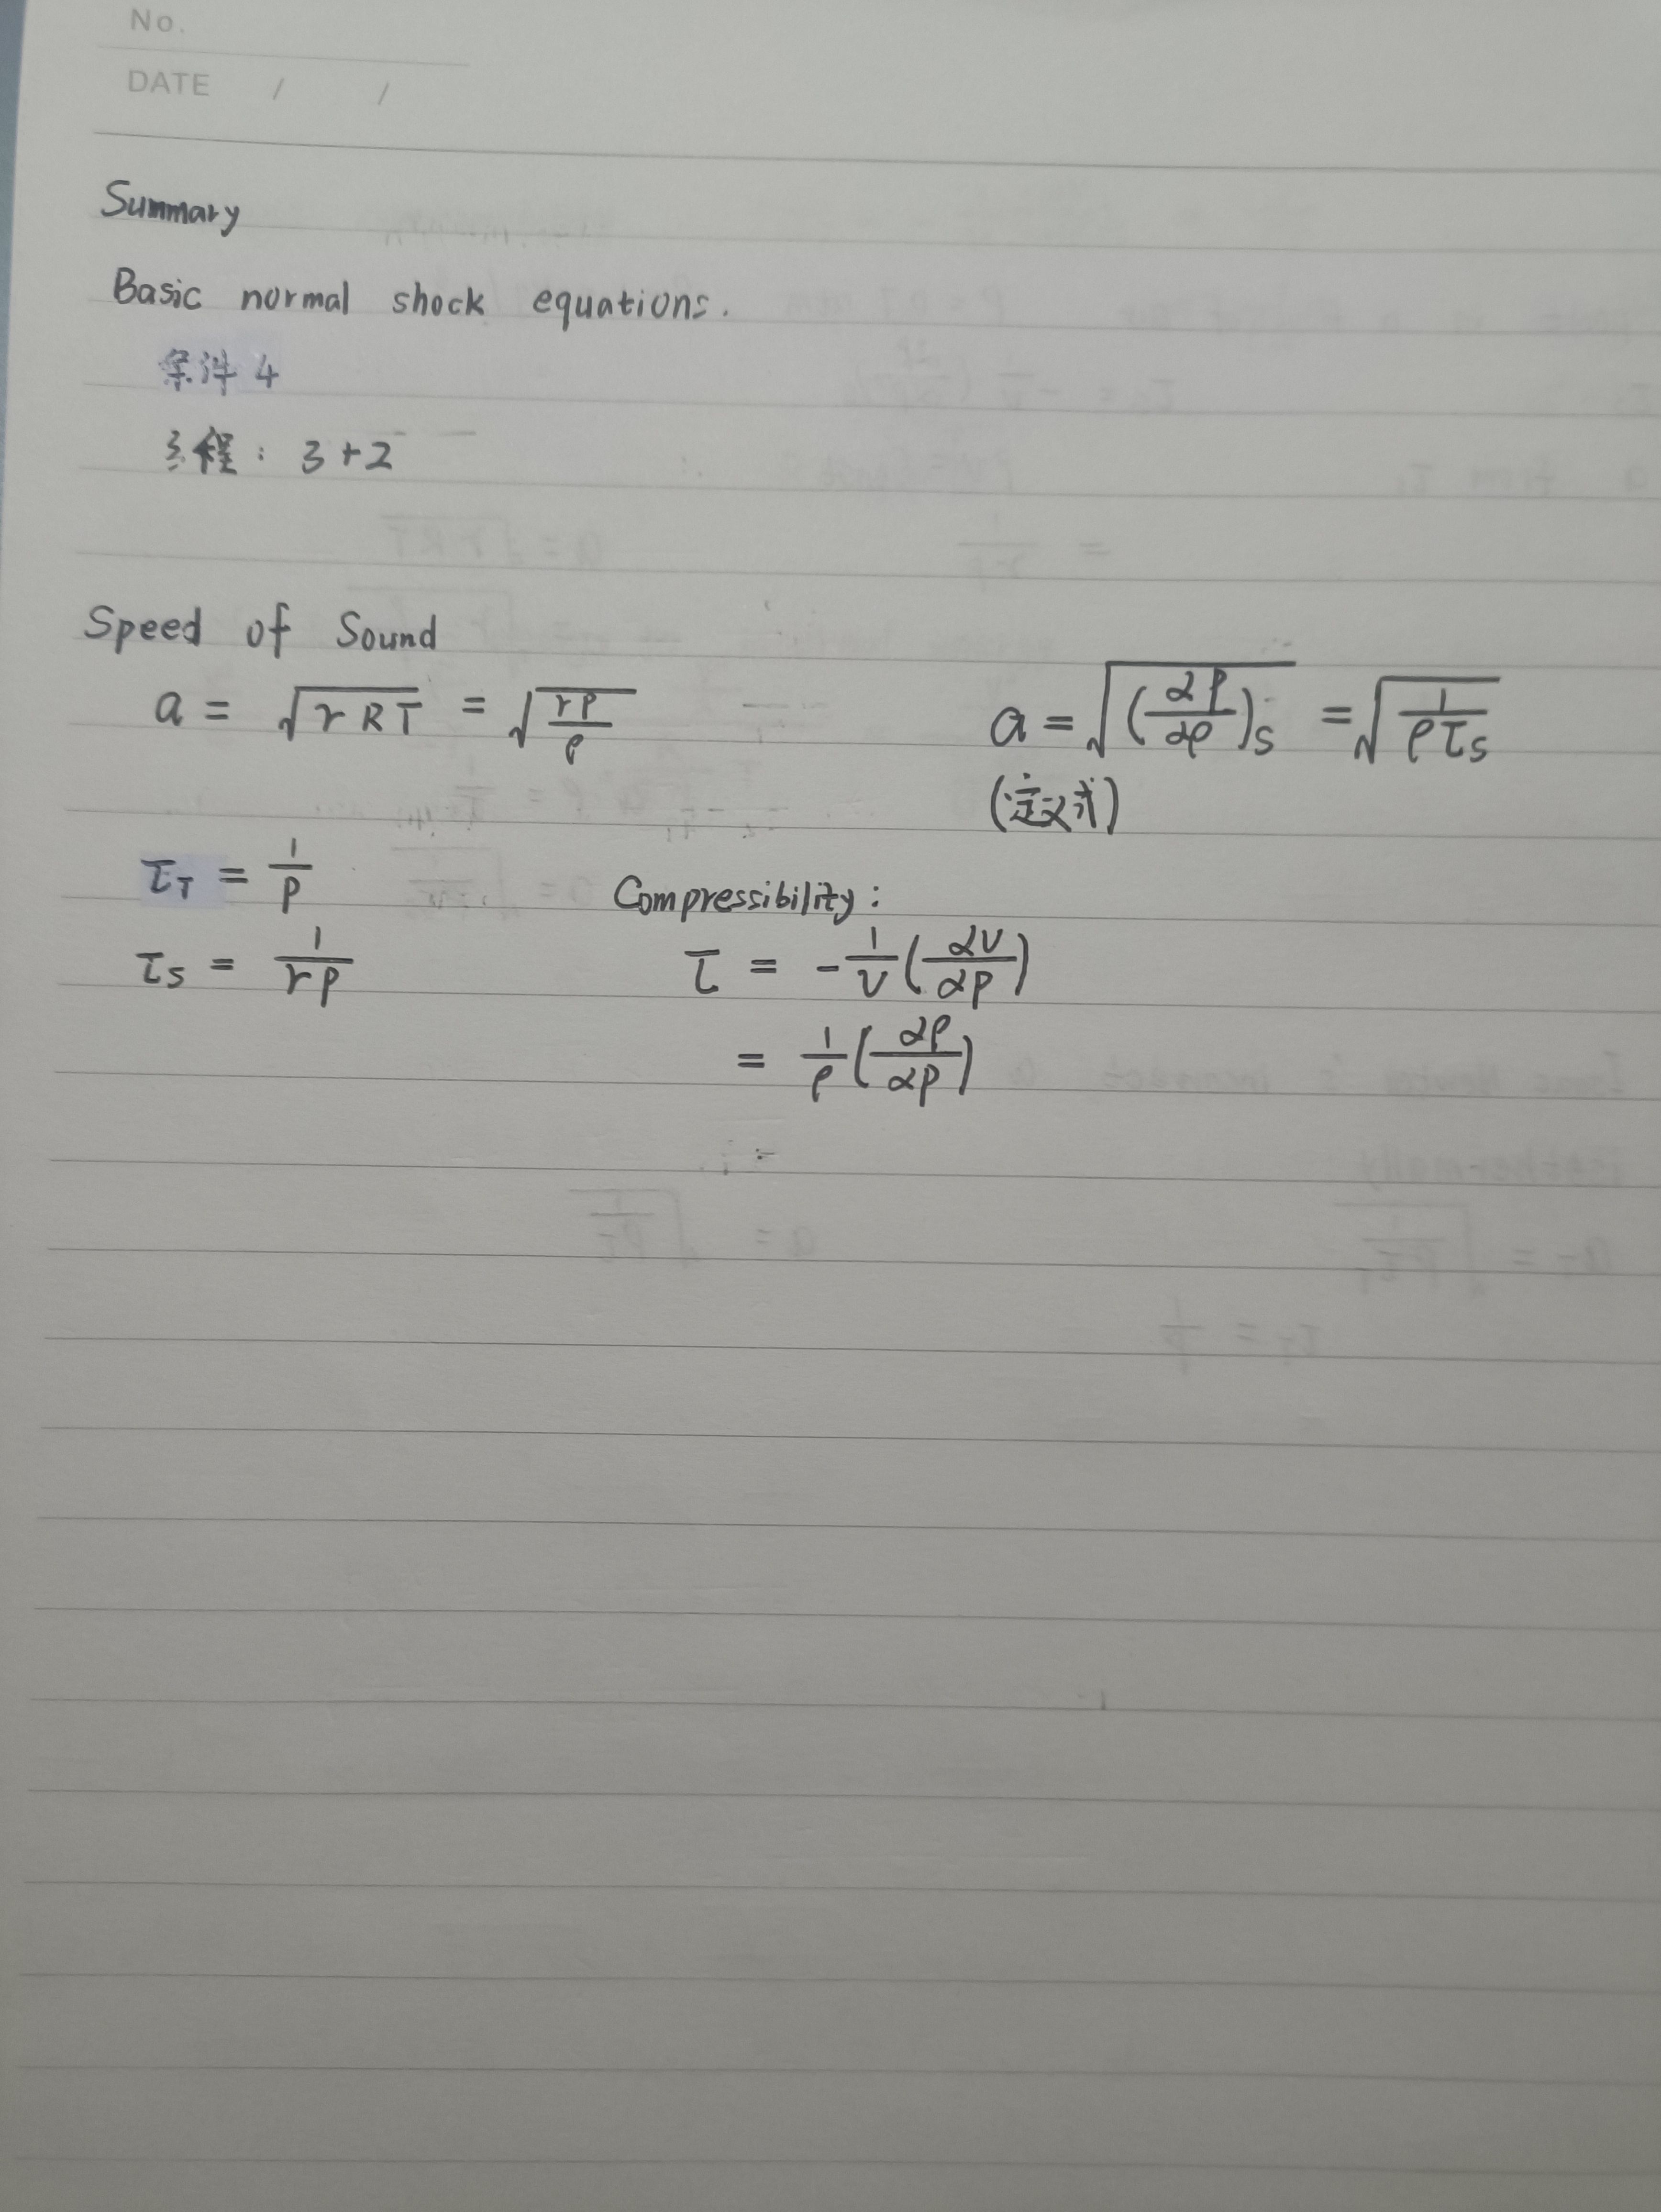 No.
DATE / /
Summary
Basic normal shock equations.
条件 4
方程: 3+2
Speed of Sound
a = √(γRT) = √(γP/ρ)
a = √((∂P/∂ρ)s) = √(1/(ρτs))
(定义式)
τT = 1/P
Compressibility:
τs = 1/(γP)
τ = -1/v (∂v/∂P)
= 1/ρ (∂ρ/∂P)